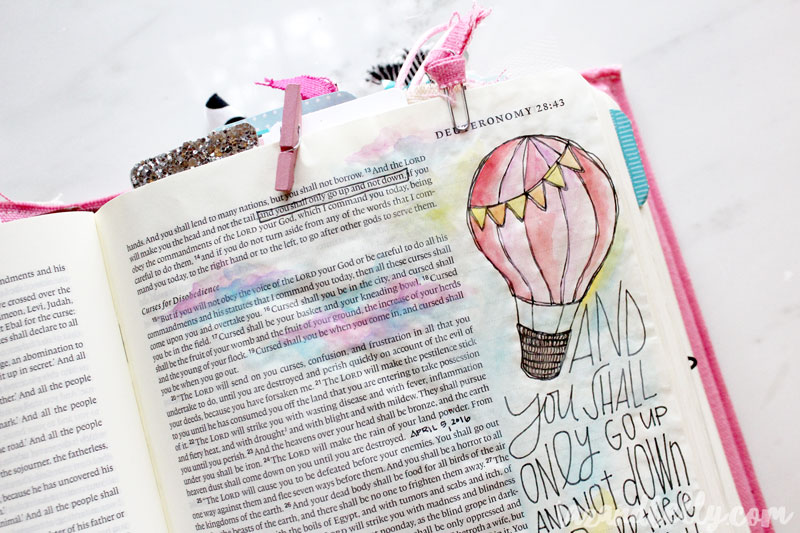 ndments and his
re crossed over the
meon, Levi, Judah,
t Ebal for the curse:
es shall declare to all
ge, an abomination to
it up in secret.' And all
ther.' And all the people
mark.' And all the people
road.' And all the people
sojourner, the fatherless,
because he has uncovered his
nimal.' And all the people
of his father or
DEUTERONOMY 28:43
hands. And you shall lend to many nations, but you shall not borrow. 13 And the LORD
will make you the head and not the tail, and you shall only go up and not down, if you
obey the commandments of the LORD your God, which I command you today, being
careful to do them, 14 and if you do not turn aside from any of the words that I com-
mand you today, to the right hand or to the left, to go after other gods to serve them.
Curses for Disobedience
15 "But if you will not obey the voice of the LORD your God or be careful to do all his
commandments and his statutes that I command you today, then all these curses shall
come upon you and overtake you. 16 Cursed shall you be in the city, and cursed shall
you be in the field. 17 Cursed shall be your basket and your kneading bowl. 18 Cursed
shall be the fruit of your womb and the fruit of your ground, the increase of your herds
and the young of your flock. 19 Cursed shall you be when you come in, and cursed shall
you be when you go out.
20 "The LORD will send on you curses, confusion, and frustration in all that you
undertake to do, until you are destroyed and perish quickly on account of the evil of
your deeds, because you have forsaken me. 21 The LORD will make the pestilence stick
to you until he has consumed you off the land that you are entering to take possession
of it. 22 The LORD will strike you with wasting disease and with fever, inflammation
and fiery heat, and with drought and with blight and with mildew. They shall pursue
you until you perish. 23 And the heavens over your head shall be bronze, and the earth
under you shall be iron. 24 The LORD will make the rain of your land powder. From
heaven dust shall come down on you until you are destroyed. APRIL 5, 2016
25 "The LORD will cause you to be defeated before your enemies. You shall go out
one way against them and flee seven ways before them. And you shall be a horror to all
the kingdoms of the earth. 26 And your dead body shall be food for all birds of the air
the beasts of the earth, and there shall be no one to frighten them away. 27 The
with the boils of Egypt, and with tumors and scabs and itch, of
LORD will strike you with madness and blindness
noonday, as the blind grope in dark-
shall be only oppressed and
betroth a wife, but
AND
YOU SHALL
ONLY GO UP
AND NOT DOWN